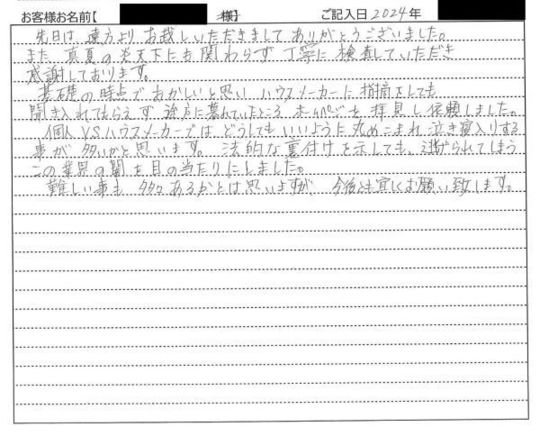 お客様お名前【 様】 ご記入日 2024年
先日は、遠方より お越しいただきまして ありがとうございました。
また 真夏の炎天下にも関わらず 丁寧に 検査していただき
感謝しております。
基礎の時点で おかしいと思い ハウスメーカーに 指摘をしても
聞き入れてもらえず 途方に暮れていたところ ホームページを 拝見し依頼しました。
個人 VS ハウスメーカーでは、どうしても いいように 丸めこまれ 泣き寝入りする
事が 多いかと思います。 法的な裏付けを示しても、逃げられてしまう
この業界の闇を目の当たりにしました。
難しい事も 多々 あるかとは思いますが 今後とも宜しくお願い致します。